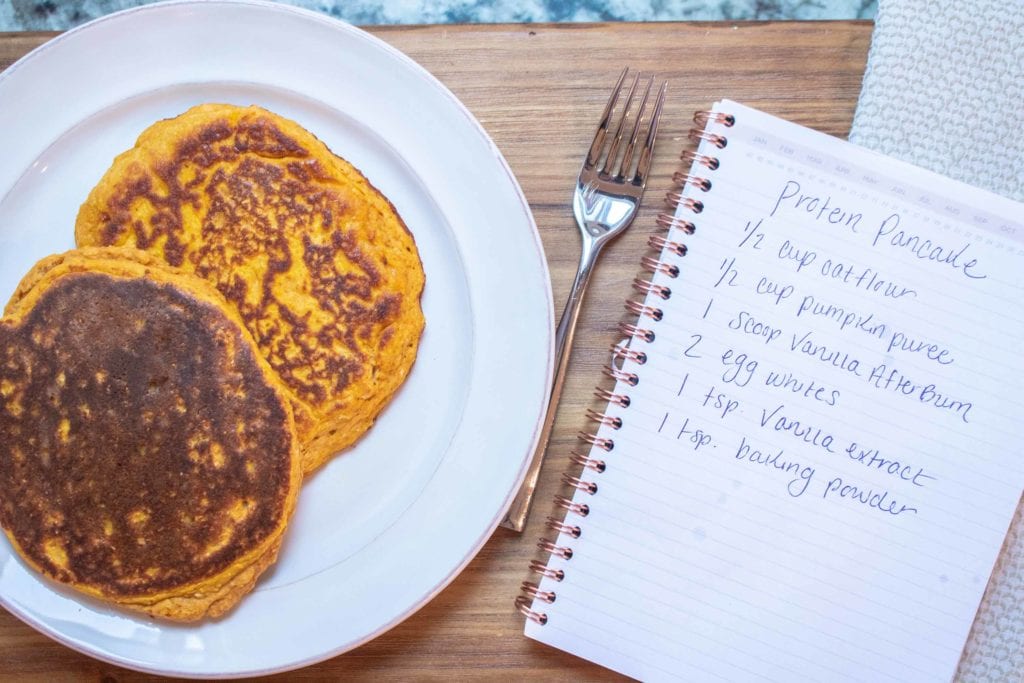 JAN FEB MAR APR MAY JUN JUL AUG SEP OCT
Protein Pancake
1/2 cup oatflour
1/2 cup pumpkin puree
1 scoop Vanilla AfterBurn
2 egg whites
1 tsp. Vanilla extract
1 tsp. baking powder